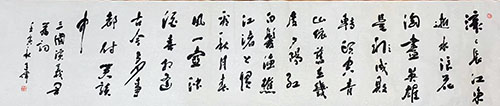 滚滚长江东
逝水浪花
淘尽英雄
是非成败
转头空青
山依旧在几
度夕阳红
白发渔樵
江渚上惯
看秋月春
风一壶浊
酒喜相逢
古今多少事
都付笑谈
中
三国演义开
篇词